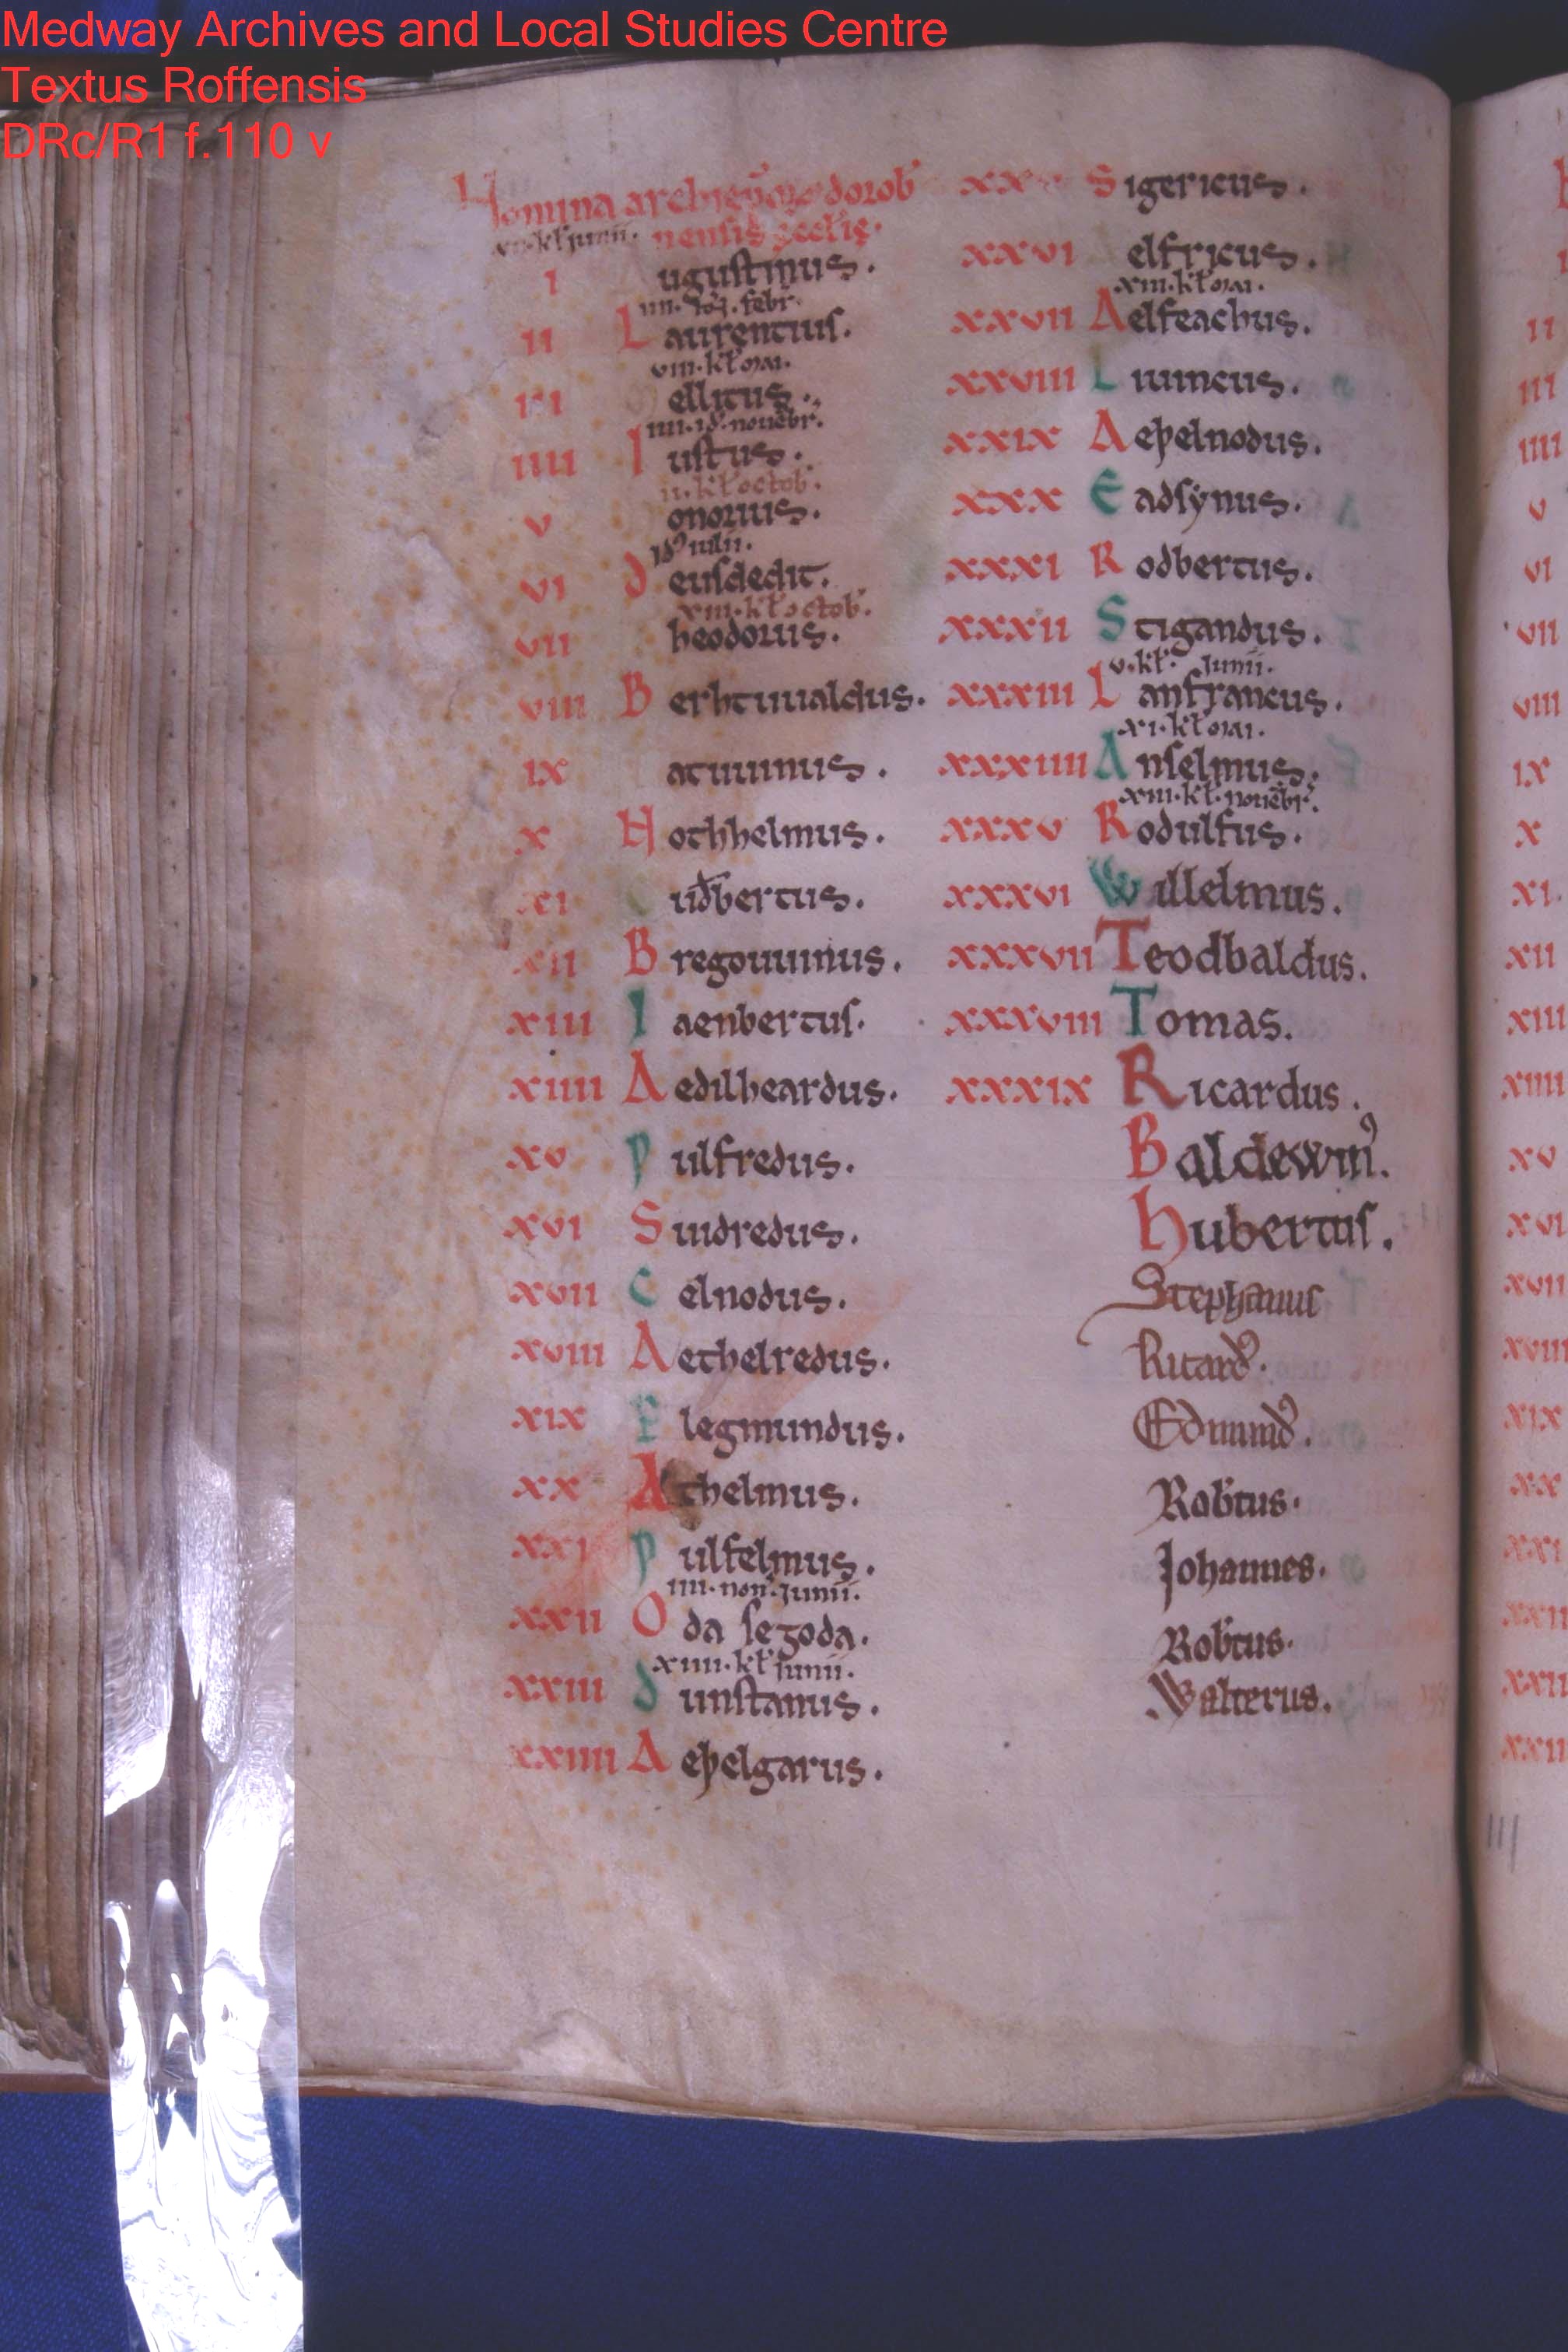 Medway Archives and Local Studies Centre
Textus Roffensis
DRc/R1 f.110 v
Nomina archiep̄oꝝ doꝛob
nensis ęcclię.
kł iunii.
I ugustinus.
IIII. febr.
II Laurentius.
VIII. kł mai.
III ellitus.
IIII. id. nouēbr.
IIII Iustus.
II. kł octob.
V onorius.
id iulii.
VI Deusdedit.
XIII. kł octob.
VII heodorus.
VIII Berhtuualdus.
IX atuuinus.
X Hothhelmus.
XI udbertus.
XII Bregouuinus.
XIII Iaenbertus.
XIIII Aedilheardus.
XV Ƿulfredus.
XVI Suidredus.
XVII Celnodus.
XVIII Aethelredus.
XIX Plegmundus.
XX Athelmus.
XXI Ƿulfelmus.
IIII. non. Iunii.
XXII Oda se goda.
XIIII. kł iunii.
XXIII Dunstanus.
XXIIII Aeþelgarus.
XXV Sigericus.
XXVI Aelfricus.
XIII. kł mai.
XXVII Aelfeachus.
XXVIII Liuincus.
XXIX Aeþelnodus.
XXX Eadsynus.
XXXI Rodbertus.
XXXII Stigandus.
V. kł. Iunii.
XXXIII Lanfrancus.
XI. kł mai.
XXXIIII Anselmus.
XIII. kł. nouēbr.
XXXV Rodulfus.
XXXVI Willelmus.
XXXVII Teodbaldus.
XXXVIII Tomas.
XXXIX Ricardus.
Baldewinꝰ.
Hubertus.
Stephanus
Ricardꝰ.
Edmundꝰ.
Rob'tus.
Johannes.
Rob'tus.
Walterus.
II
III
IIII
V
VI
VII
VIII
IX
X
XI
XII
XIII
XIIII
XV
XVI
XVII
XVIII
XIX
XX
XXI
XXII